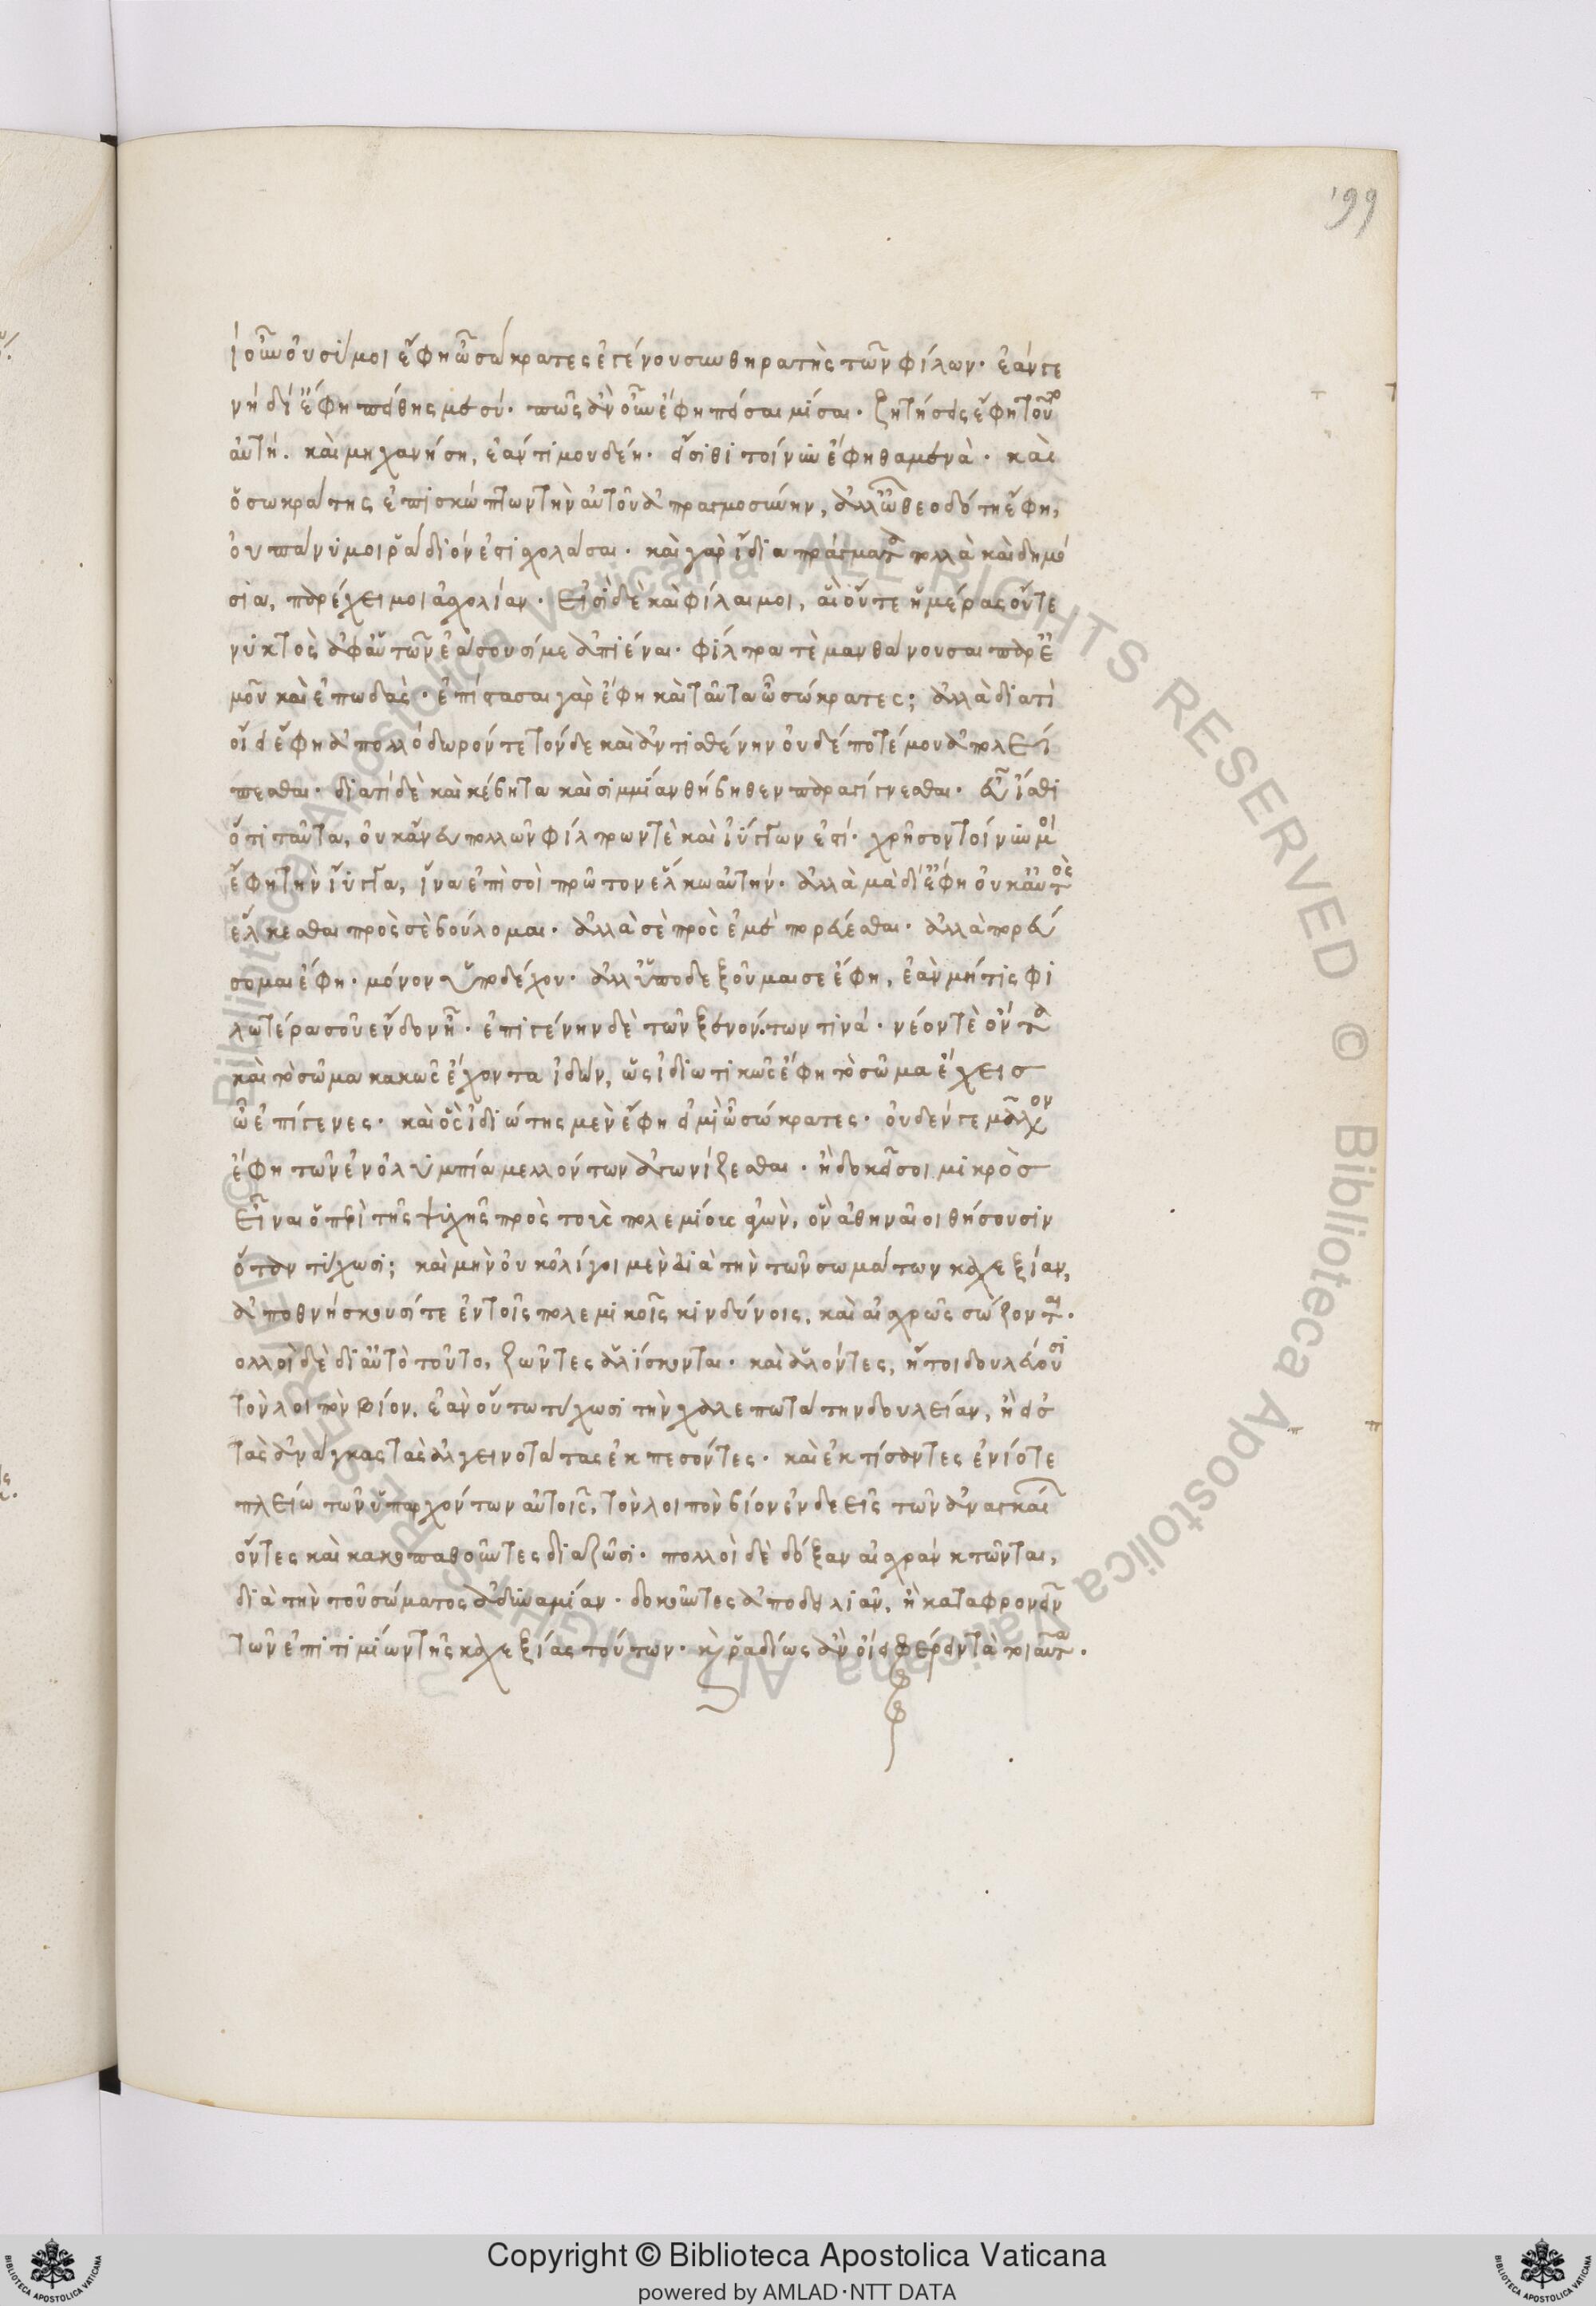 199
ί οὖν οὐ σύ μοι ἔφη ὦ σώκρατες ἐγένου συνθηρατὴς τῶν φίλων· ἐάν γε
νὴ δί ἔφη πείθῃς με σύ· πῶς ἂν οὖν ἔφη πείσαιμί σαι· ζητήσεις ἔφη τοῦτο
αὐτή· καὶ μηχανήση, ἐάν τί μου δέῃ· εἴσιθι τοίνυν ἔφη θαμινά· καὶ
ὁ σωκράτης ἐπισκώπτων τὴν αὐτοῦ ἀπραγμοσύνην, ἀλλ ὦ θεοδότη ἔφη,
οὐ πάνύ μοι ῥάδιόν ἐστι σχολάσαι· καὶ γὰρ ἴδια πράγματα πολλὰ καὶ δημό
σια, παρέχει μοι ἀσχολίαν· εἰσὶ δὲ καὶ φίλαι μοι, αἳ οὔτε ἡμέρας οὔτε
νυκτὸς ἀφ αὑτῶν ἐάσουσί με ἀπιέναι· φίλτρα τὲ μανθάνουσαι παρ ἐ
μοῦ καὶ ἐπωδάς· ἐπίστασαι γὰρ ἔφη καὶ ταῦτα ὦ σώκρατες; ἀλλὰ διατί
οἴει ἔφη ἀπολλόδωρόν τε τόνδε καὶ ἀντισθένην οὐδέποτέ μου ἀπολεί
πεσθαι· διατί δὲ καὶ κέβητα καὶ σιμμίαν θήβηθεν παραγίγνεσθαι· εὖ ἴσθι
ὅτι ταῦτα, οὐκ ἄνευ πολλῶν φίλτρων τὲ καὶ ἰύγγων ἐστί· χρῆσον τοίνυν μοί
ἔφη τὴν ἴυγγα, ἵνα ἐπὶ σοὶ πρῶτον ἕλκω αὐτήν· ἀλλὰ μὰ δί ἔφη οὐκ αὐτὸς
ἕλκεσθαι πρὸς σὲ βούλομαι· ἀλλὰ σὲ πρὸς ἐμὲ πορεύεσθαι· ἀλλὰ πορεύ
σομαι ἔφη· μόνον ὑποδέχου· ἀλλ ὑποδεξοῦμαι σε ἔφη, ἐὰν μή τις φι
λωτέρα σοῦ ἔνδον ᾖ· ἐπιγένην δὲ τῶν ξυνόντων τινά· νέον τὲ ὄντα
καὶ τὸ σῶμα κακῶς ἔχοντα ἰδών, ὡς ἰδιωτικῶς ἔφη τὸ σῶμα ἔχεισ
ὦ ἐπίγενες· καὶ ὃς ἰδιώτης μὲν ἔφη εἰμὶ ὦ σώκρατες· οὐδέν γε μᾶλλον
ἔφη τῶν ἐν ὀλυμπία μελλόντων ἀγωνίζεσθαι· ἢ δοκεῖ σοι μικρὸσ
εἶναι ὁ περὶ τῆς ψυχῆς πρὸς τοὺς πολεμίους ἀγών, ὃν ἀθηναῖοι θήσουσιν
ὅταν τύχωσι; καὶ μὴν οὐκ ὀλίγοι μὲν διὰ τὴν τῶν σωμάτων καχεξίαν,
ἀποθνήσκουσί τε ἐν τοῖς πολεμικοῖς κινδύνοις, καὶ αἰσχρῶς σώζονται.
ολλοὶ δὲ δι αὐτὸ τοῦτο, ζῶντες ἁλίσκονται· καὶ ἁλόντες, ἤτοι δουλεύουσι
τὸν λοιπὸν βίον, ἐὰν οὕτω τύχωσι τὴν χαλεπωτάτην δουλείαν, ἢ εἰς
τὰς ἀνάγκας τὰς ἀλγεινοτάτας ἐκπεσόντες· καὶ ἐκτίσαντες ἐνίοτε
πλείω τῶν ὑπαρχόντων αὐτοῖς, τὸν λοιπὸν βίον ἐνδεεῖς τῶν ἀναγκαίων
ὄντες καὶ κακοπαθοῦντες διαζῶσι· πολλοὶ δὲ δόξαν αἰσχρὰν κτῶνται,
διὰ τὴν τοῦ σώματος ἀδυναμίαν· δοκοῦντες ἀποδειλιᾶν, ἢ καταφρονεῖν
τῶν ἐπιτιμίων τῆς καχεξίας τούτων· καὶ ῥαδίως ἂν οἴει φέρειν τὰ τοιαῦτα.
© Biblioteca Apostolica Vaticana ALL RIGHTS RESERVED
Copyright © Biblioteca Apostolica Vaticana
powered by AMLAD·NTT DATA